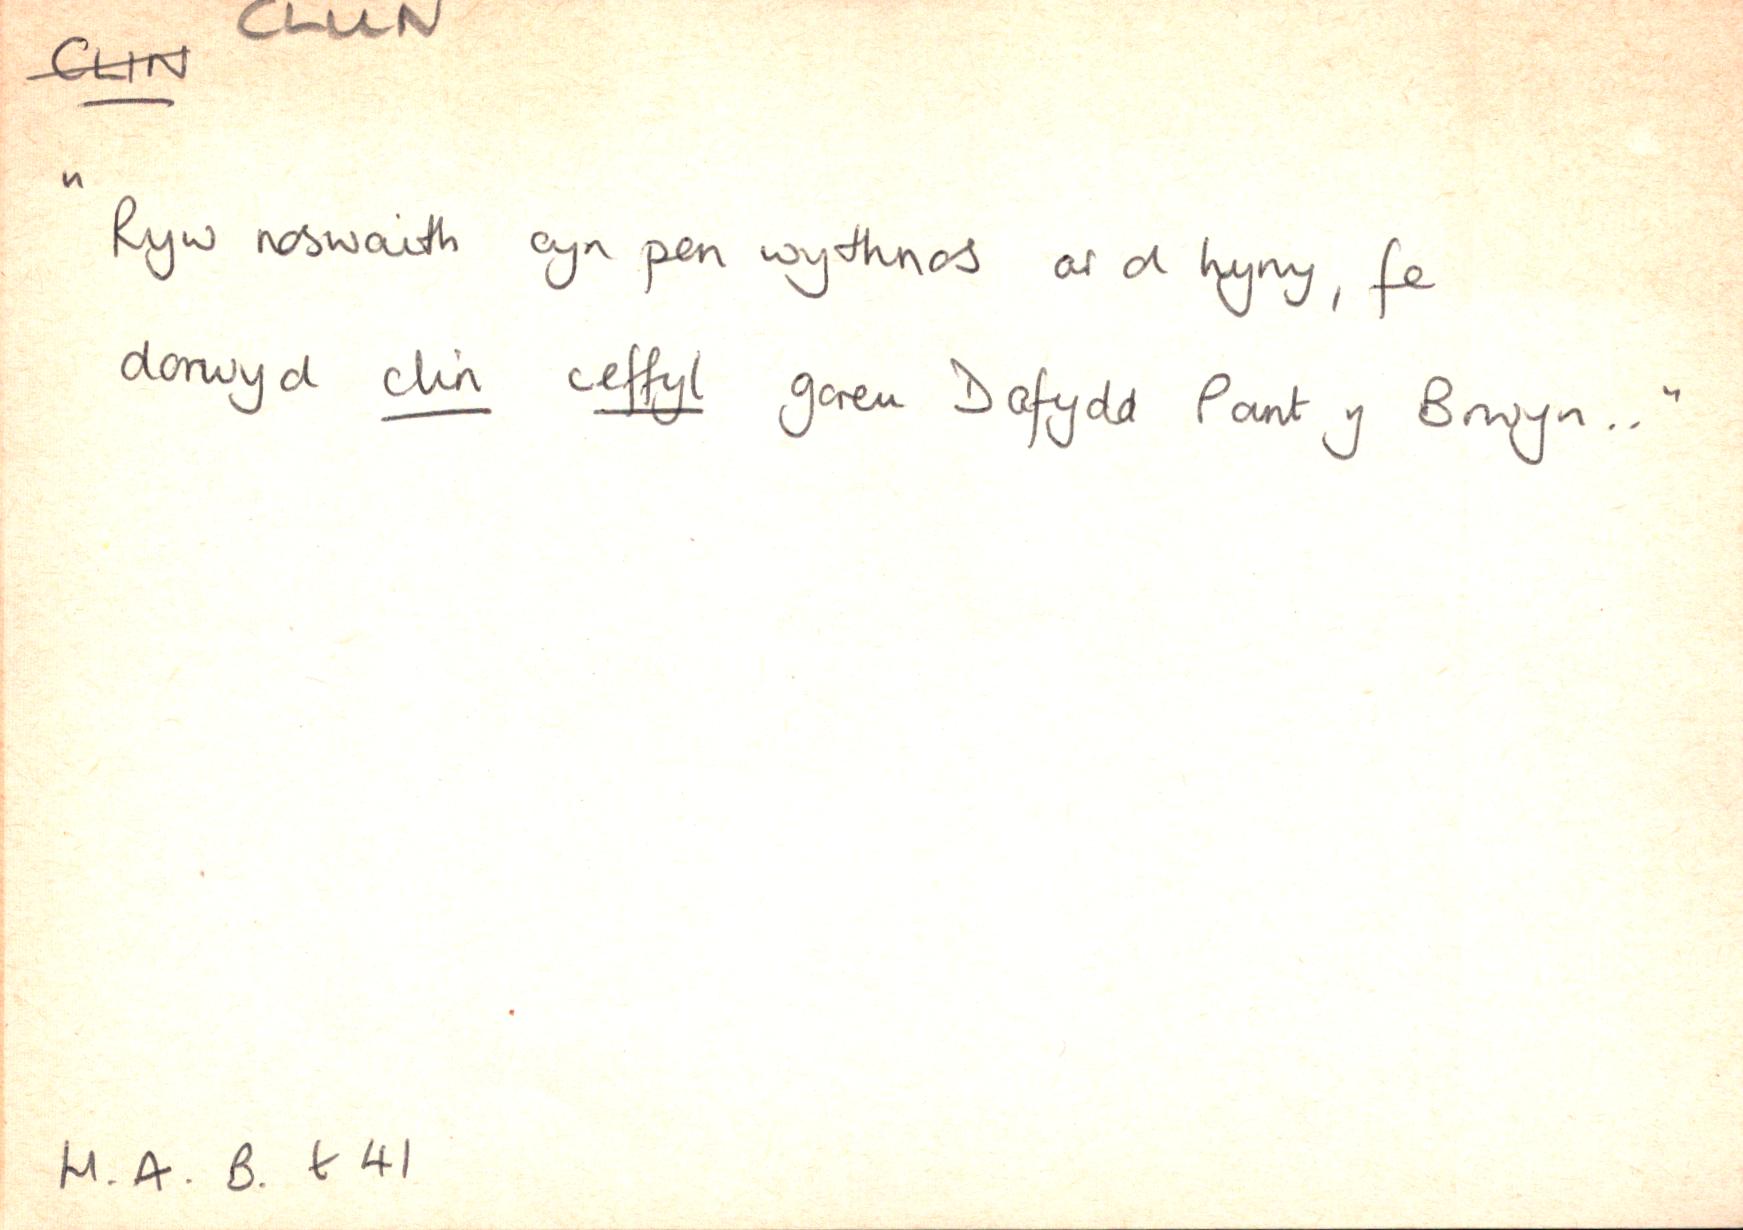 CLUN
CLIN
"Ryw noswaith cyn pen wythnos ar ol hyny, fe
dorwyd clin ceffyl goreu Dafydd Pant y Brwyn.."
H.A.B. t 41